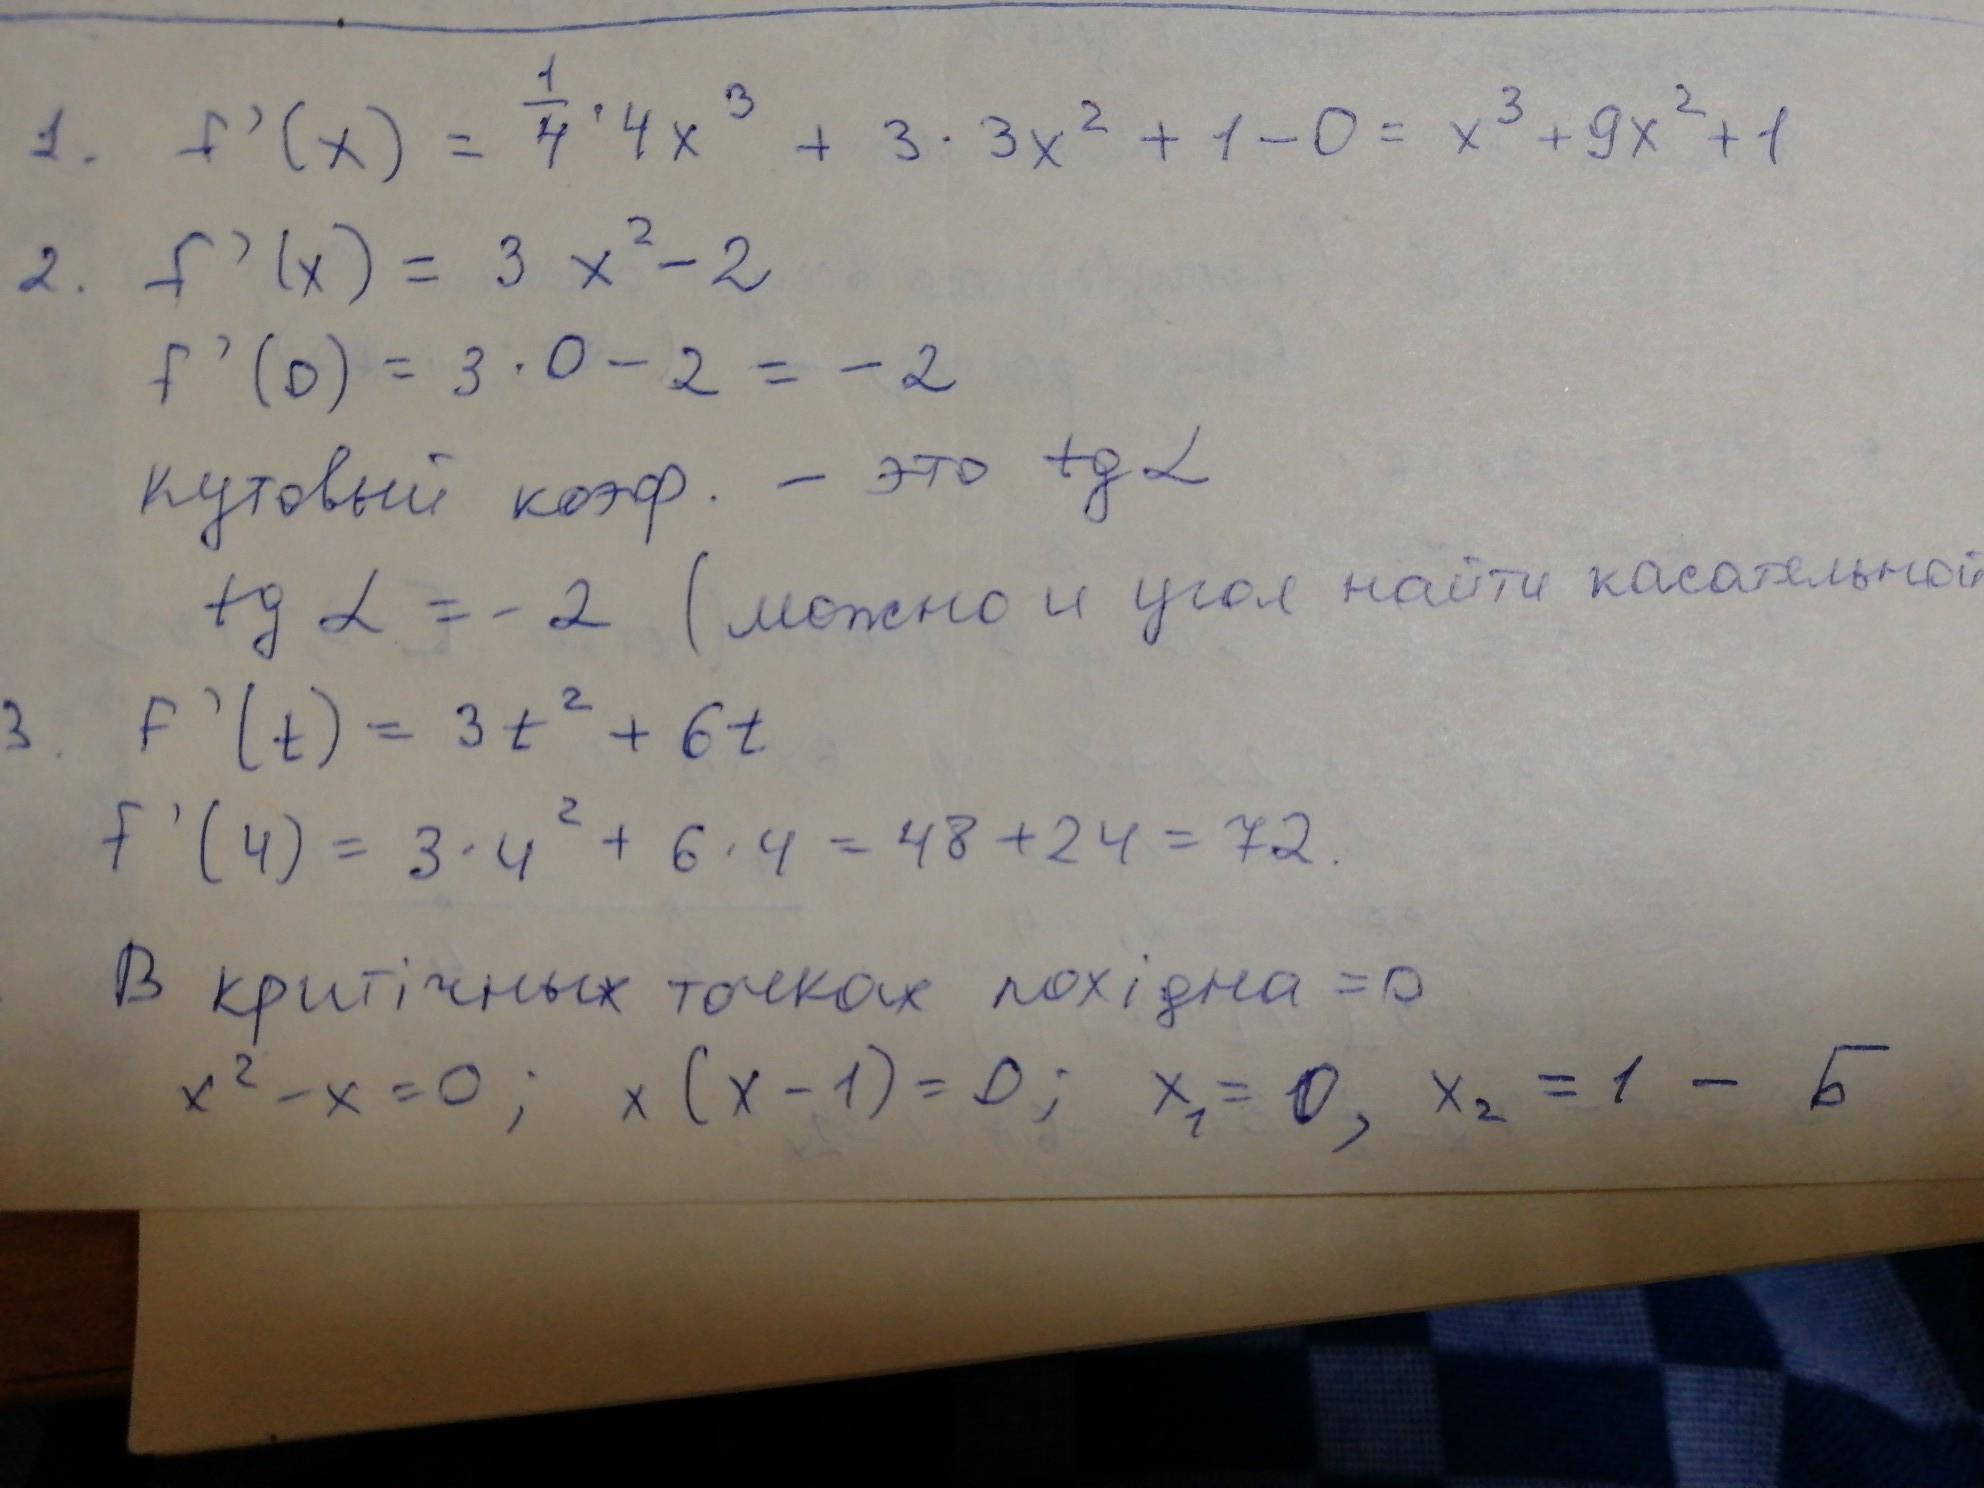 1. f'(x) = 1/4 · 4x³ + 3 · 3x² + 1 - 0 = x³ + 9x² + 1
2. f'(x) = 3 x² - 2
f'(0) = 3 · 0 - 2 = - 2
кутовый коэф. - это tg α
tg α = - 2 (можно и угол найти касательной
3. F'(t) = 3t² + 6t
f'(4) = 3 · 4² + 6 · 4 = 48 + 24 = 72.
В критічных точках похідна = 0
x² - x = 0; x(x - 1) = 0; x₁ = 0, x₂ = 1 - Б